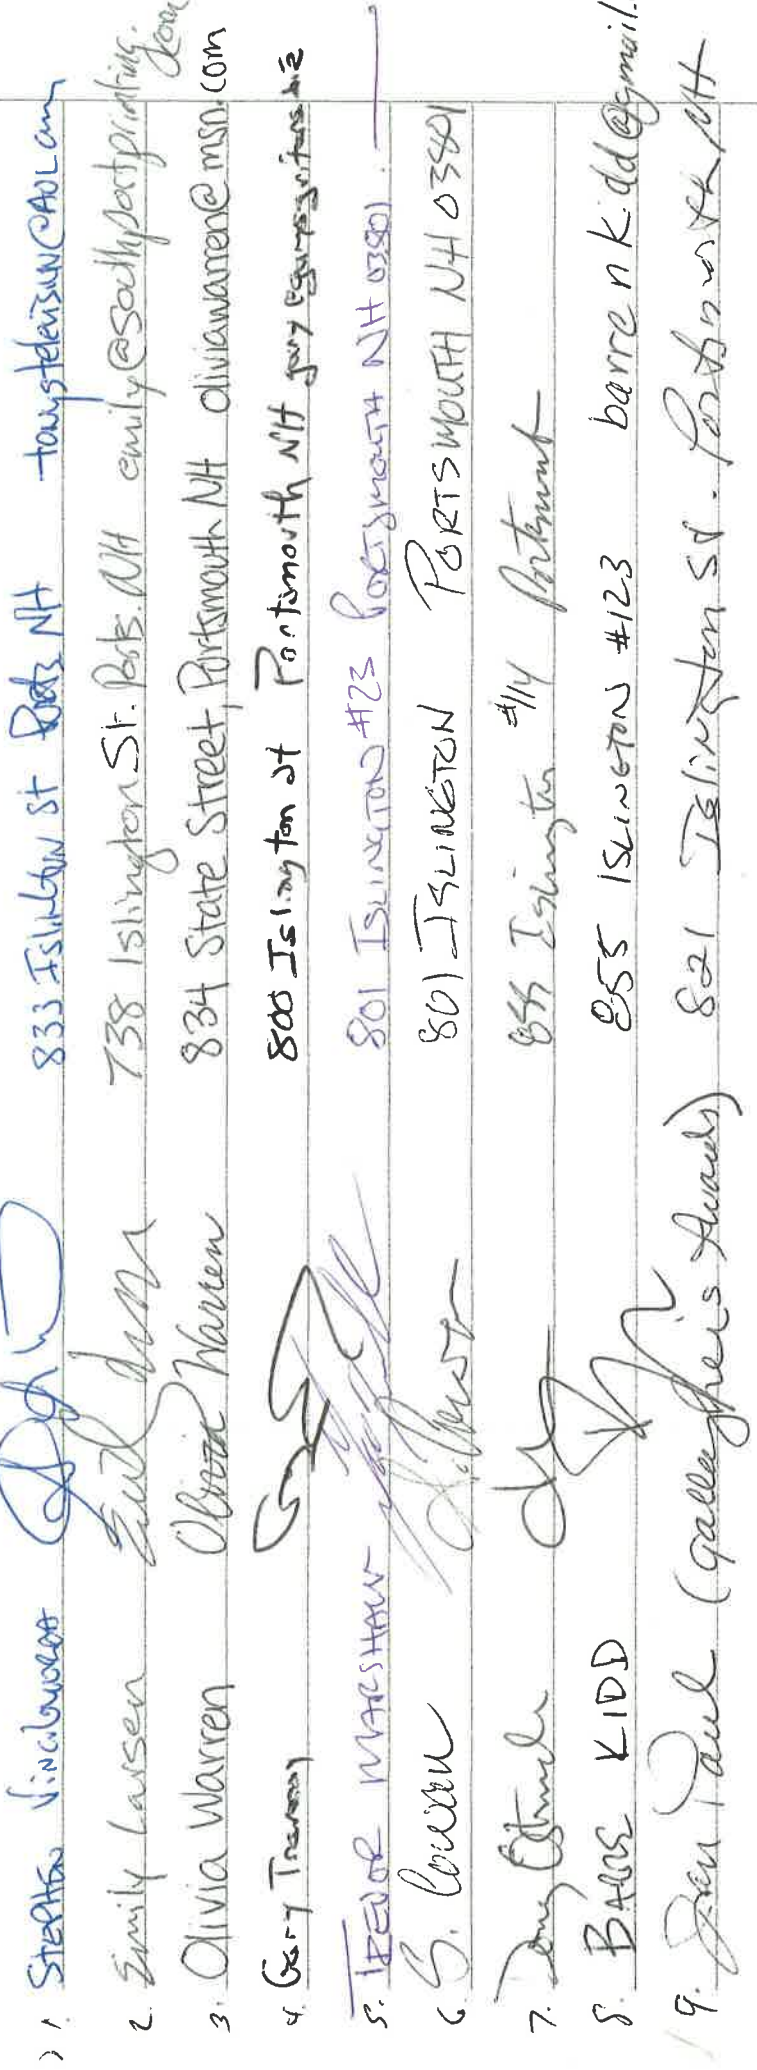 1. STEPHEN 833 ISLINGTON St Ports NH tonystelevision@AOL.com
2. Emily Larsen 738 Islington St. Ports. NH emily@southportprinting.com
3. Olivia Warren Olivia Warren 834 State Street, Portsmouth NH oliviawarren@msn.com
4. Gary 800 Islington St Portsmouth NH
5. TREVOR MARSHALL 801 ISLINGTON #23 PORTSMOUTH NH 03801.
6. S. 801 ISLINGTON PORTSMOUTH NH 03801
7. Islington #14
8. BARRE KIDD 855 ISLINGTON #123 barrenkidd@gmail.
9. Paul (Gallagher's Awards) 821 Islington St. Portsmouth NH